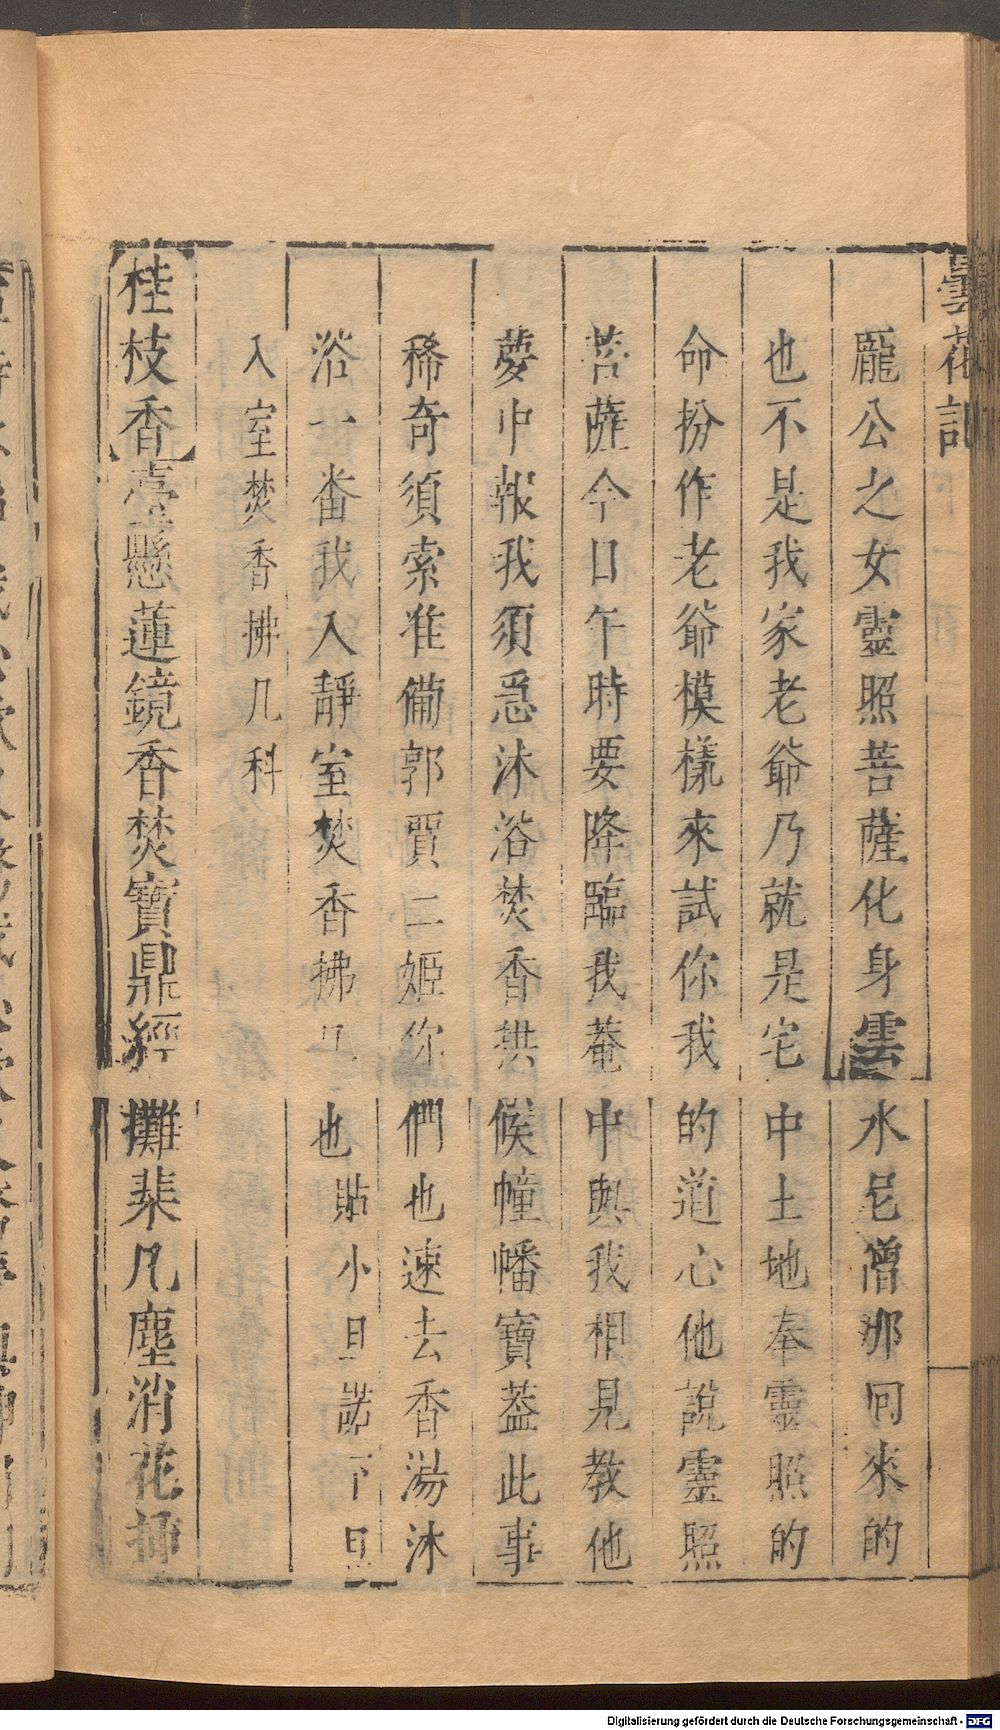 曇花記
龐公之女靈照菩薩化身雲水尼僧那回來的
也不是我家老爺乃就是宅中土地奉靈照的
命扮作老爺模樣來試你我的道心他說靈照
菩薩今日午時要降臨我菴中與我相見教他
夢中報我須急沐浴焚香拱候幢幡寶蓋此事
稀奇須索准備郭賈二姬你們也速去香湯沐
浴一番我入靜室焚香拂几也貼小旦諾下旦
入室焚香拂几科
桂枝香臺懸蓮鏡香焚寶鼎經攤棐几塵消花插
Digitalisierung gefördert durch die Deutsche Forschungsgemeinschaft - DFG